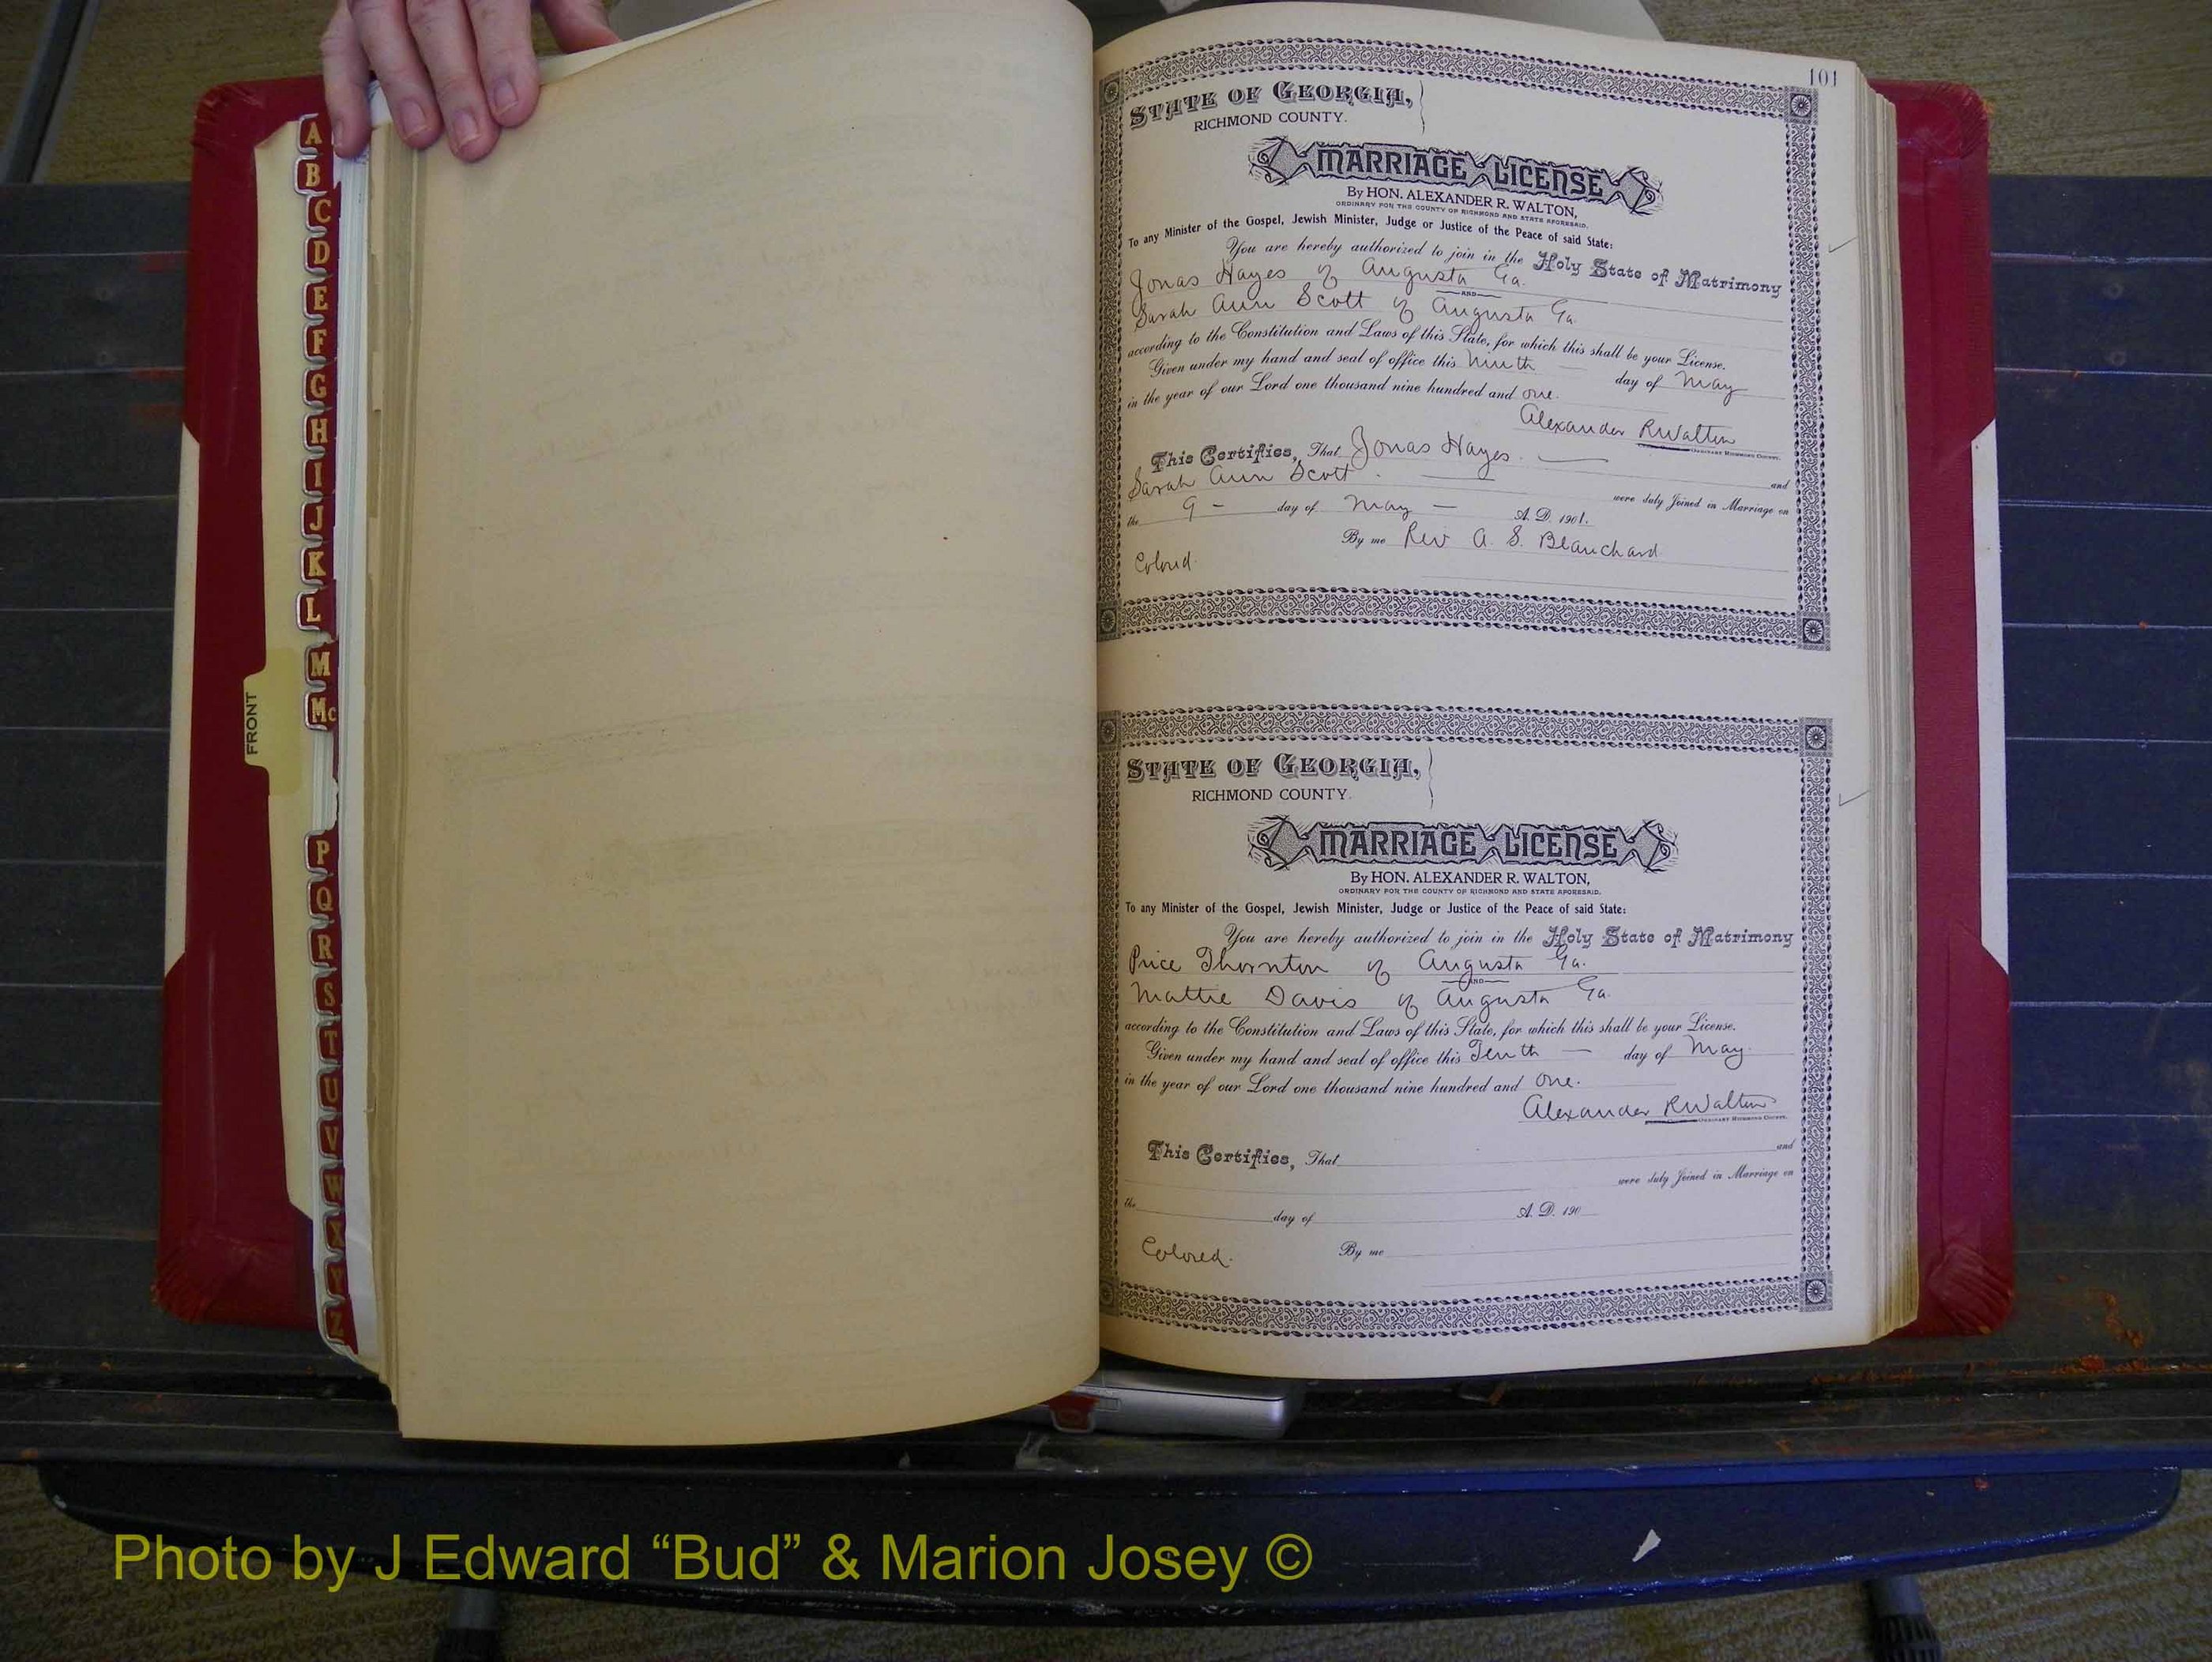 A
B
C
D
E
F
G
H
I
J
K
L
M
Mc
P
Q
R
S
T
U
V
W
X
Y
Z
FRONT
101
STATE OF GEORGIA,
RICHMOND COUNTY.
MARRIAGE LICENSE
By HON. ALEXANDER R. WALTON,
ORDINARY FOR THE COUNTY OF RICHMOND AND STATE AFORESAID.
To any Minister of the Gospel, Jewish Minister, Judge or Justice of the Peace of said State:
You are hereby authorized to join in the Holy State of Matrimony
Jonas Hayes of Augusta Ga.
AND
Sarah Ann Scott of Augusta Ga.
according to the Constitution and Laws of this State, for which this shall be your License.
Given under my hand and seal of office this Ninth day of May
in the year of our Lord one thousand nine hundred and one.
Alexander R Walton
ORDINARY RICHMOND COUNTY.
This Certifies, That Jonas Hayes. and
Sarah Ann Scott. were duly Joined in Marriage on
the 9 - day of May - A. D. 1901.
By me Rev A. S. Blanchard
Colored.
STATE OF GEORGIA,
RICHMOND COUNTY.
MARRIAGE LICENSE
By HON. ALEXANDER R. WALTON,
ORDINARY FOR THE COUNTY OF RICHMOND AND STATE AFORESAID.
To any Minister of the Gospel, Jewish Minister, Judge or Justice of the Peace of said State:
You are hereby authorized to join in the Holy State of Matrimony
Price Thornton of Augusta Ga.
AND
Mattie Davis of Augusta Ga.
according to the Constitution and Laws of this State, for which this shall be your License.
Given under my hand and seal of office this Tenth — day of May.
in the year of our Lord one thousand nine hundred and one.
Alexander R Walton
ORDINARY RICHMOND COUNTY.
This Certifies, That and
were duly Joined in Marriage on
the day of A. D. 190
Colored. By me
Photo by J Edward “Bud” & Marion Josey ©